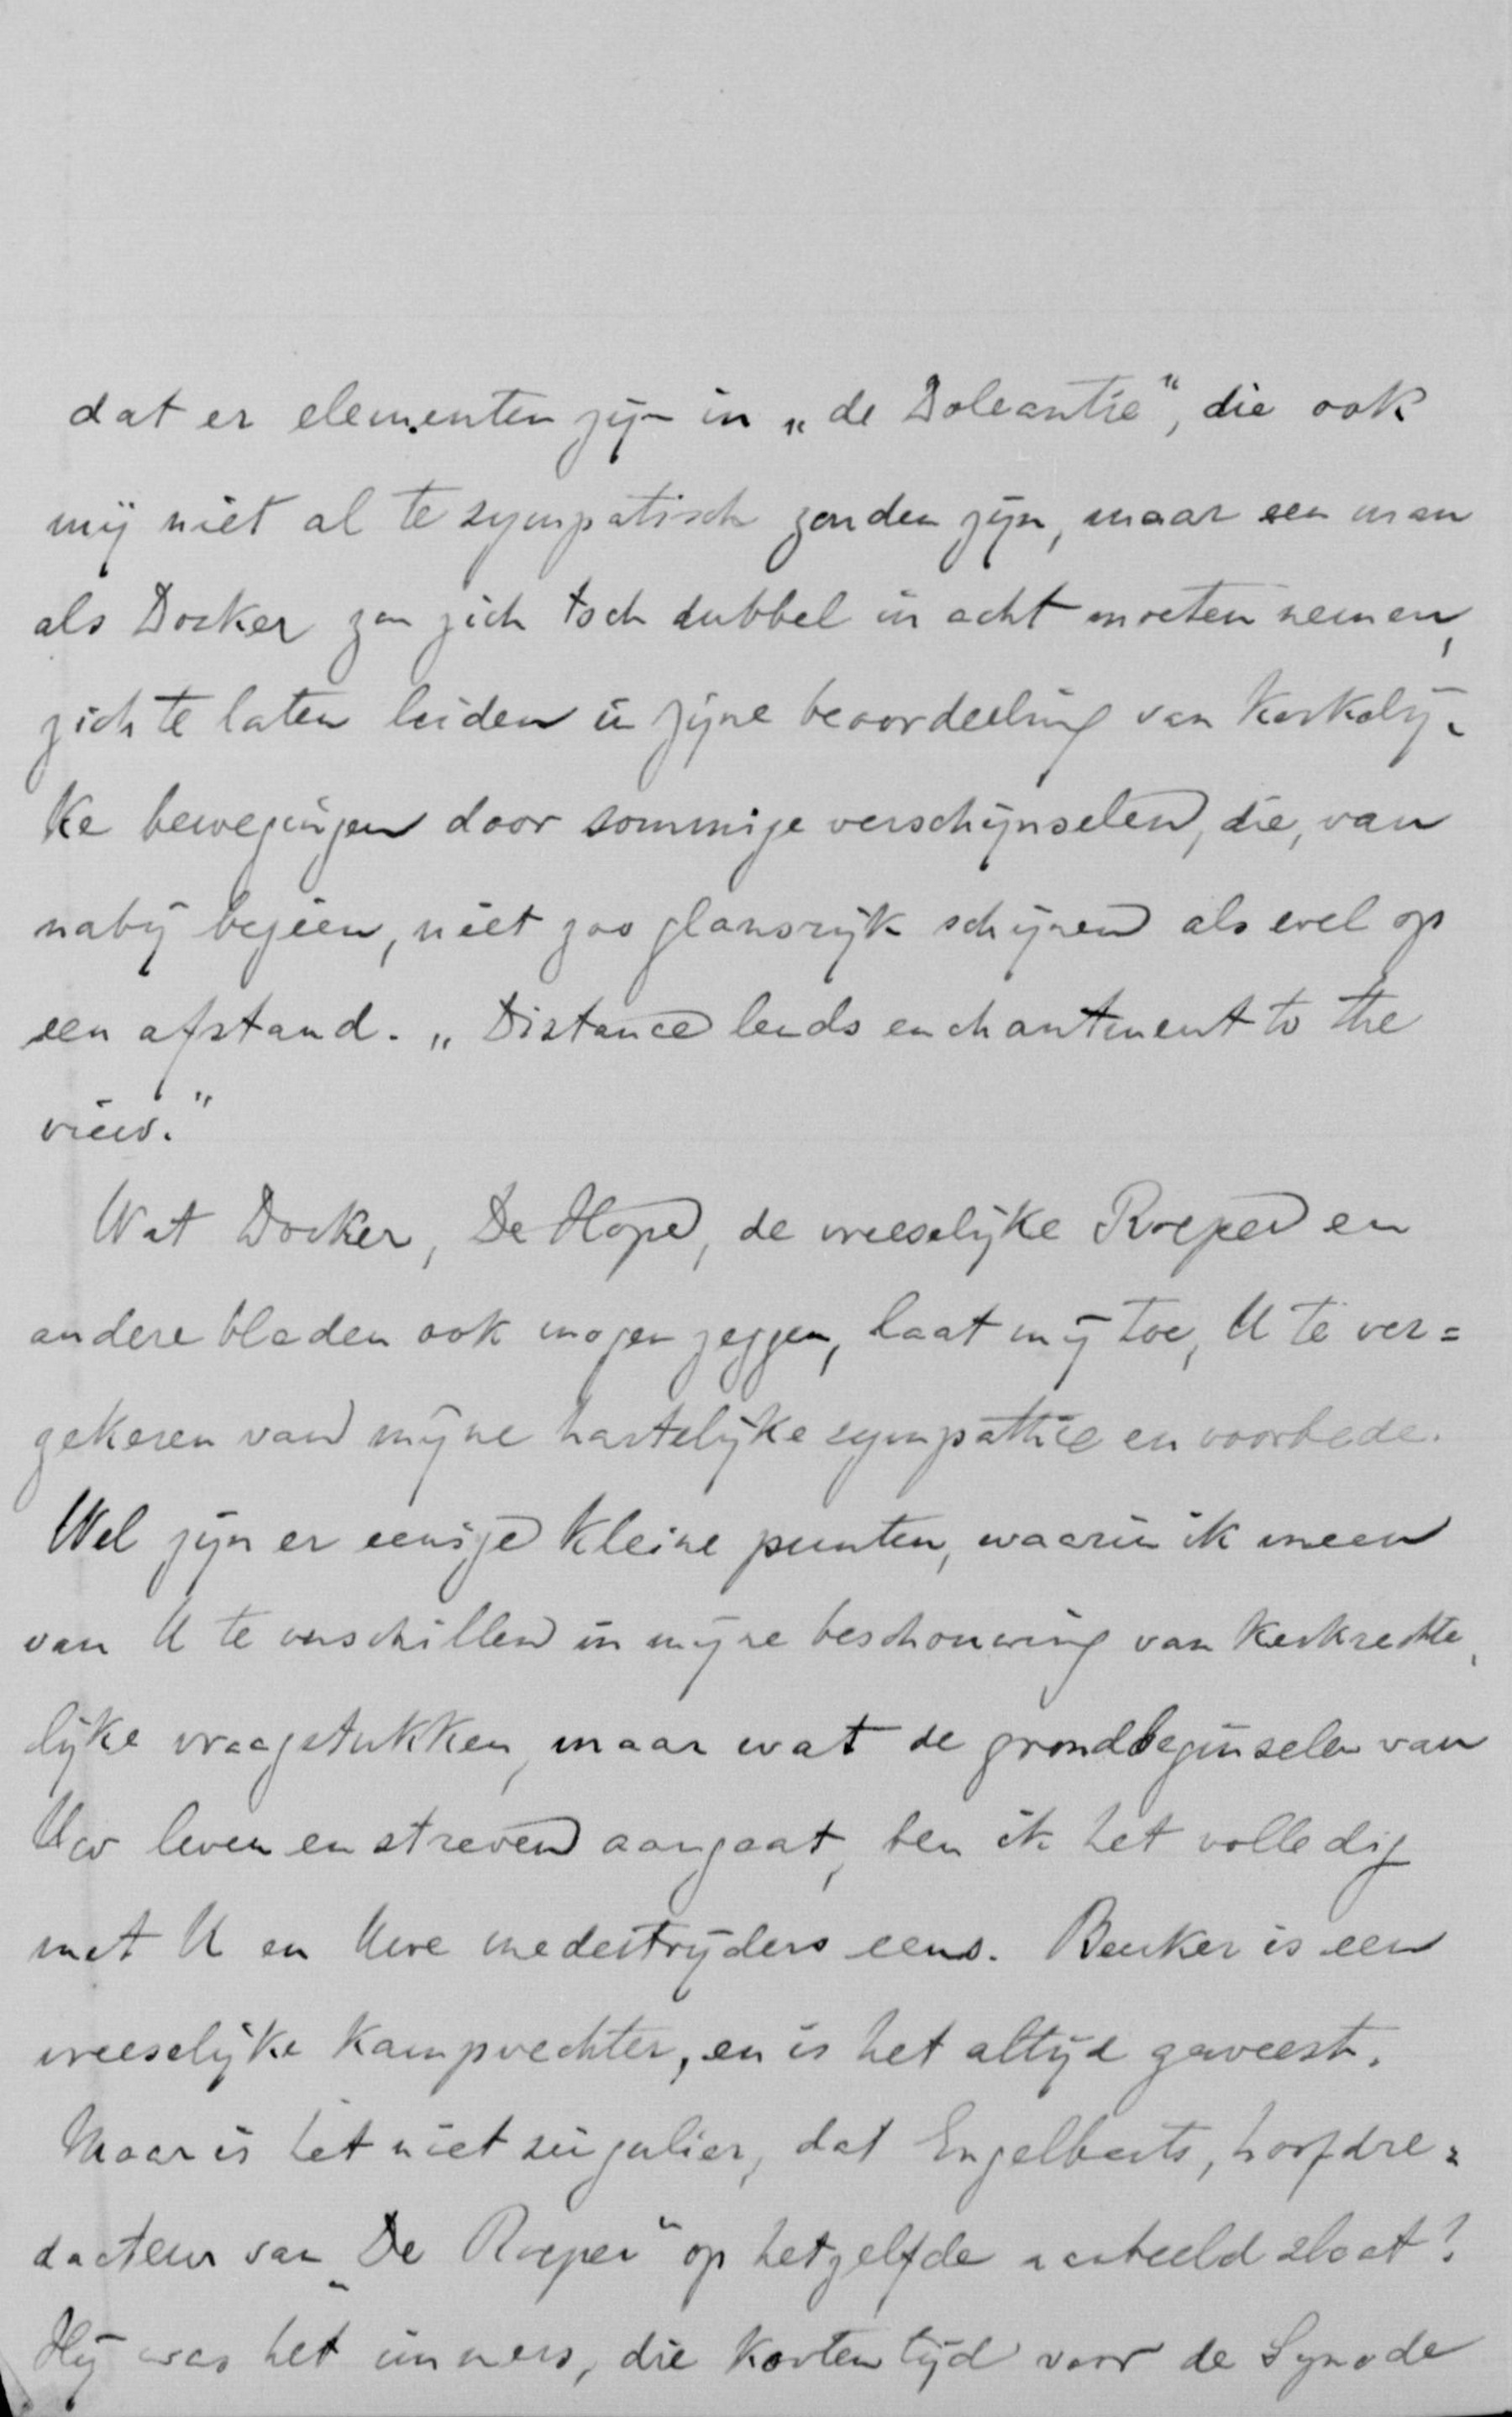 dat er elementen zijn in „de Doleantie", die ook
mij niet al te sympatisch zouden zijn, maar een man
als Dosker zou zich toch dubbel in acht moeten nemen,
zich te laten leiden in zijne beoordeeling van kerkelij-
ke bewegingen door sommige verschijnselen, die, van
nabij bezien, niet zoo glansrijk schijnen als wel op
een afstand. „Distance lends enchantment to the
view."
Wat Dosker, De Hope, de vreeselijke Roeper en
andere bladen ook mogen zeggen, laat mij toe, U te ver=
zekeren van mijne hartelijke sympathie en voorbede.
Wel zijn er eenige kleine punten, waarin ik meen
van U te verschillen in mijne beschouwing van kerkrechte-
lijke vraagstukken, maar wat de grondbeginselen van
Uw leven en streven aangaat, ben ik het volledig
met U en Uwe medestrijders eens. Beuker is een
vreeselijke kampvechter, en is het altijd geweest.
Maar is het niet singulier, dat Engelberts, hoofdre=
dacteur van „De Roeper" op hetzelfde aanbeeld slaat?
Hij was het immers, die korten tijd voor de Synode